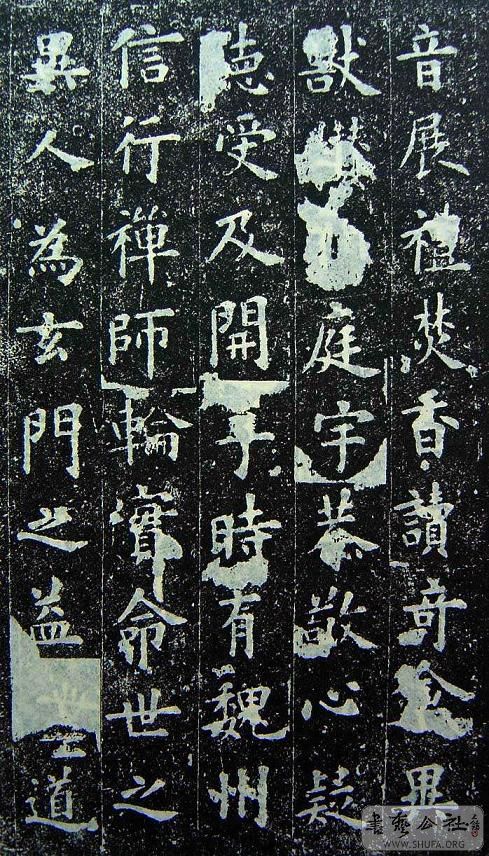 音展禮焚香讀奇
獸庭宇恭敬心疑
受及開乎時有魏州
信行禪師輪寶命世之
異人為玄門之益道
書藝公社
WWW.SHUFA.ORG